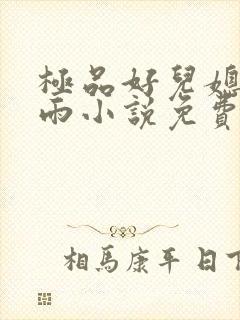 極品好兒媳
雨小說免費
相馬康平日下